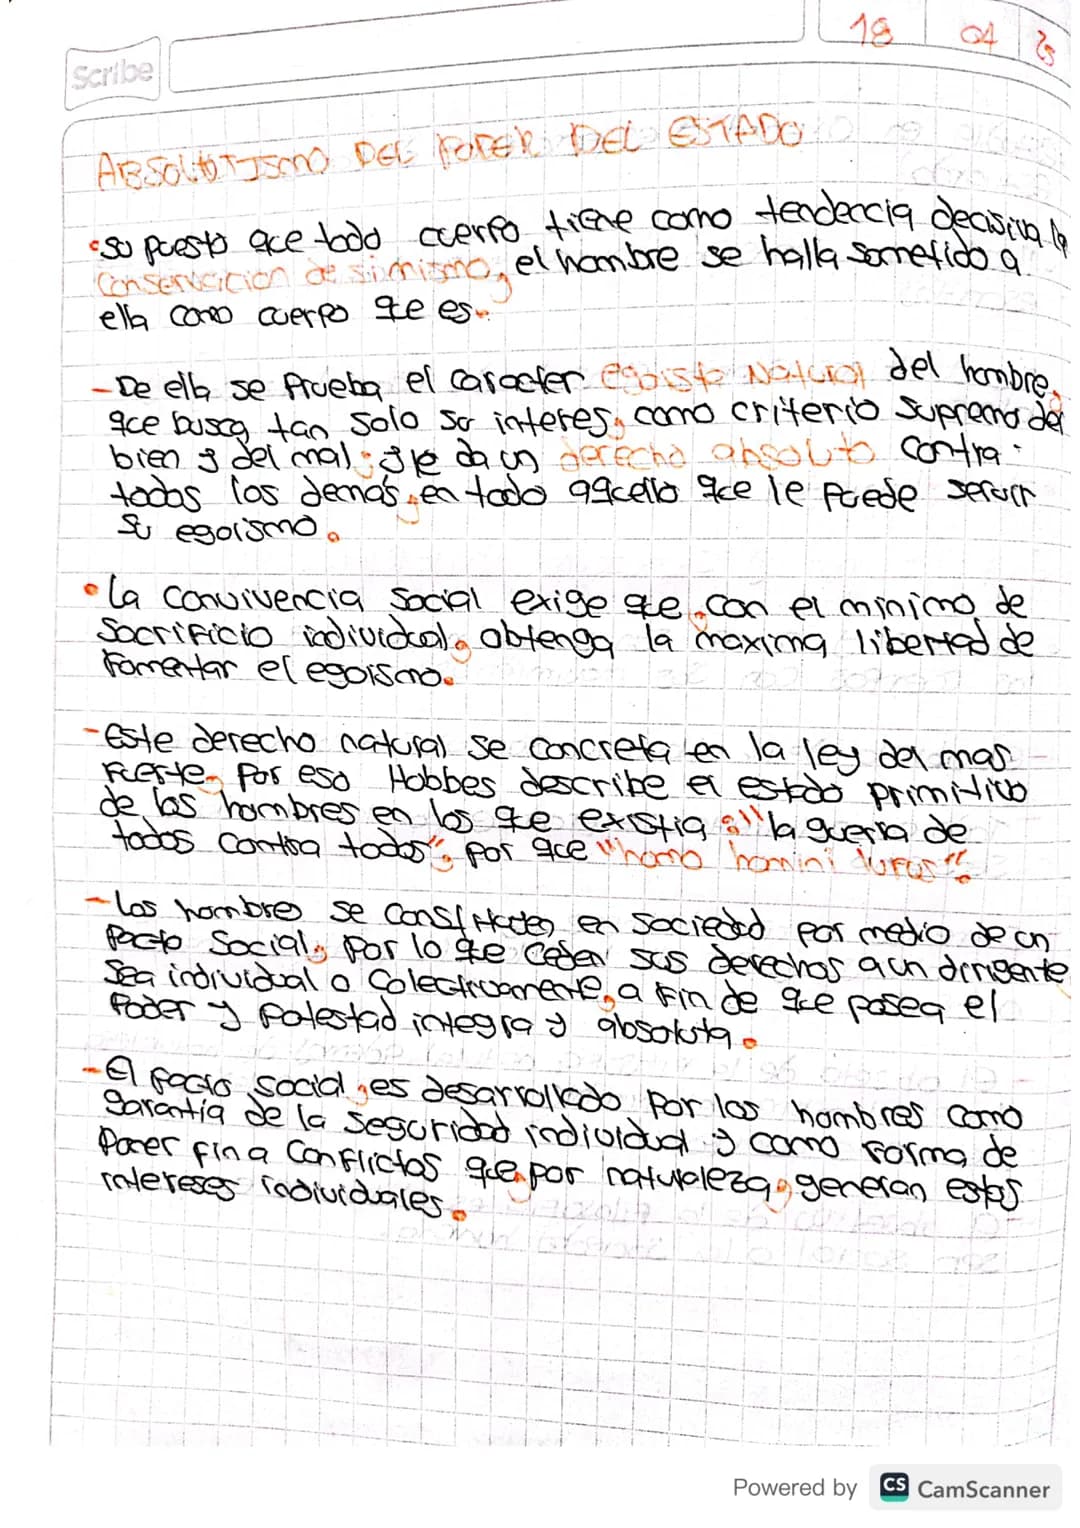 18 04 25
Scribe
ABSOLUTISMO DEL PODER DEL ESTADO
•Supuesto que todo cuerpo tiene como tendencia decisiva la
conservacicion de si mismo, el hombre se halla sometido a
ella como cuerpo que es.
-De ella se prueba el caracter egoista natural del hombre,
que busca tan solo su interes, como criterio supremo del
bien y del mal; y le da un derecho absoluto contra
todos los demás, en todo aquello que le puede servir
su egoismo.
•La convivencia social exige que, con el minimo de
sacrificio individual, obtenga la maxima libertad de
fomentar el egoismo.
-Este derecho natural se concreta en la ley del mas
fuerte, por eso Hobbes describe el estado primitivo
de los hombres en los que existia: "la guerra de
todos contra todos", por que "homo homini lupus".
-Los hombres se constituten en sociedad por medio de un
pacto social, por lo que ceden sus derechos a un dirigente
sea individual o colectivamente, a fin de que posea el
poder y potestad integra y absoluta.
-El pacto social, es desarrollado por los hombres como
garantía de la seguridad individual y como forma de
poner fin a conflictos que, por naturaleza, generan estos
intereses individuales.
Powered by CS CamScanner